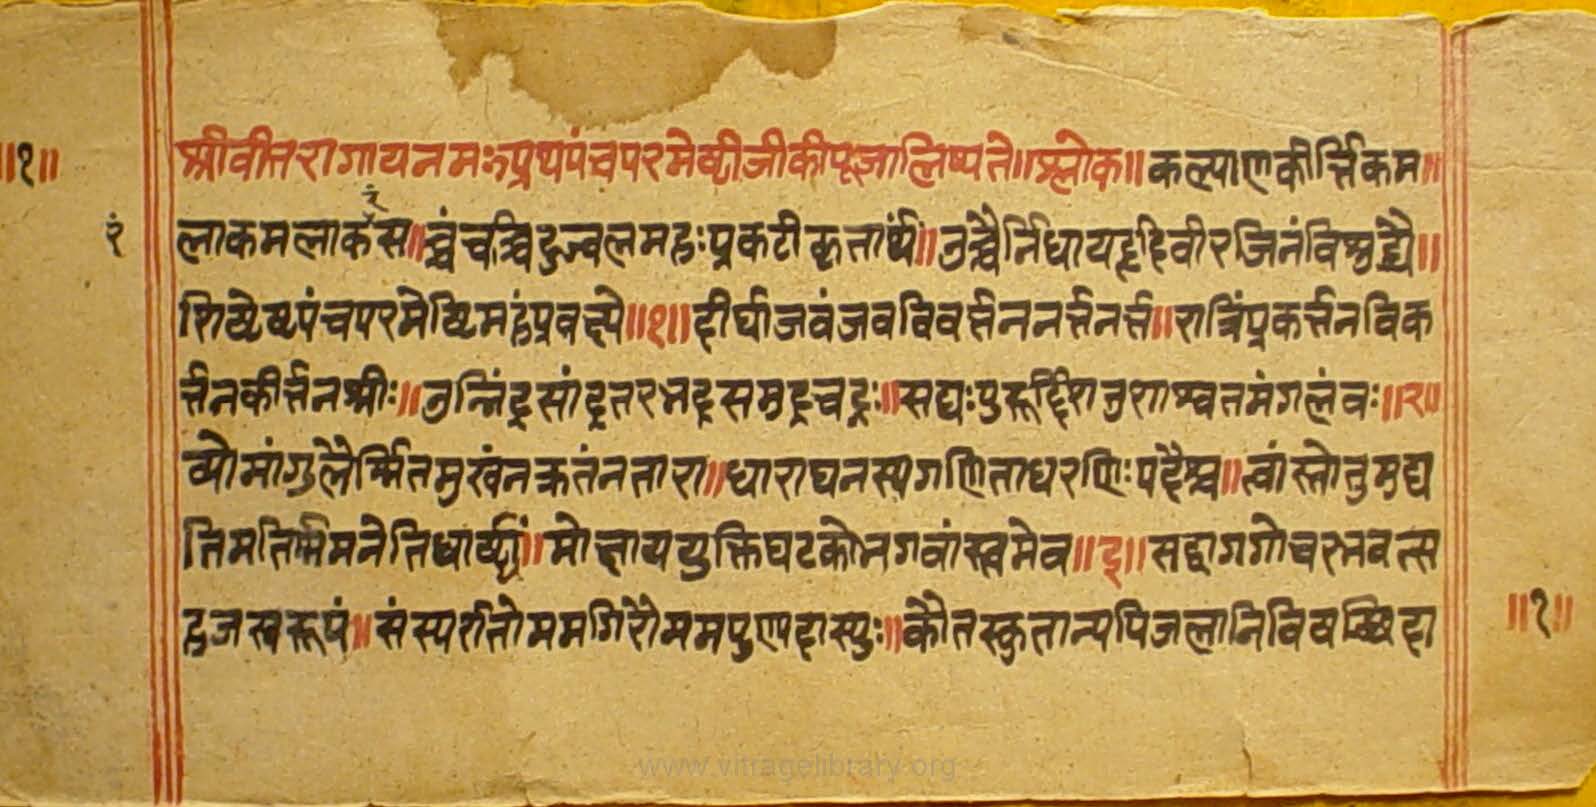 ॥१॥ श्रीवीतरागायनमःअथपंचपरमेष्ठीजीकीपूजालिष्यते॥श्लोक॥कल्याणकीर्त्तिकम॥
रं
रं लाकमलाकंस॥च्चंचच्चिदुज्वलमहःप्रकटीकृतार्थं॥उच्चैर्निधायहृदिवीरजिनंविशुद्ध्यै॥
शिष्टेष्टपंचपरमेष्टिमहंप्रवक्ष्ये॥१॥दीर्घाजवंजवविवर्त्तननर्त्तनर्त्त॥रात्रिंप्रकर्त्तनविक
र्त्तनकीर्त्तनश्रीः॥उन्निंद्रसांद्रतरभद्रसमुद्रचद्रः॥सद्यःपुरूर्द्दिशतुशाश्वतमंगलंवः॥२॥
व्योमांगुलैर्म्मितमुखंनक्रतंनतारा॥धाराघनस्यगणिताधरणिःपदैश्च॥त्वांस्तोतुमुद्य
तिमतिर्भमनेतिधार्ष्ट्यं॥मोक्षाययुक्तिघटकोभगवांस्त्वमेव॥३॥सद्वागगोचरभवत्स
हजस्वरूपं॥संस्पर्शतोममगिरोममपुण्यदास्युः॥कौतस्कुतान्यपिजलानिविषच्छिदा
॥१॥
www.vitragelibrary.org